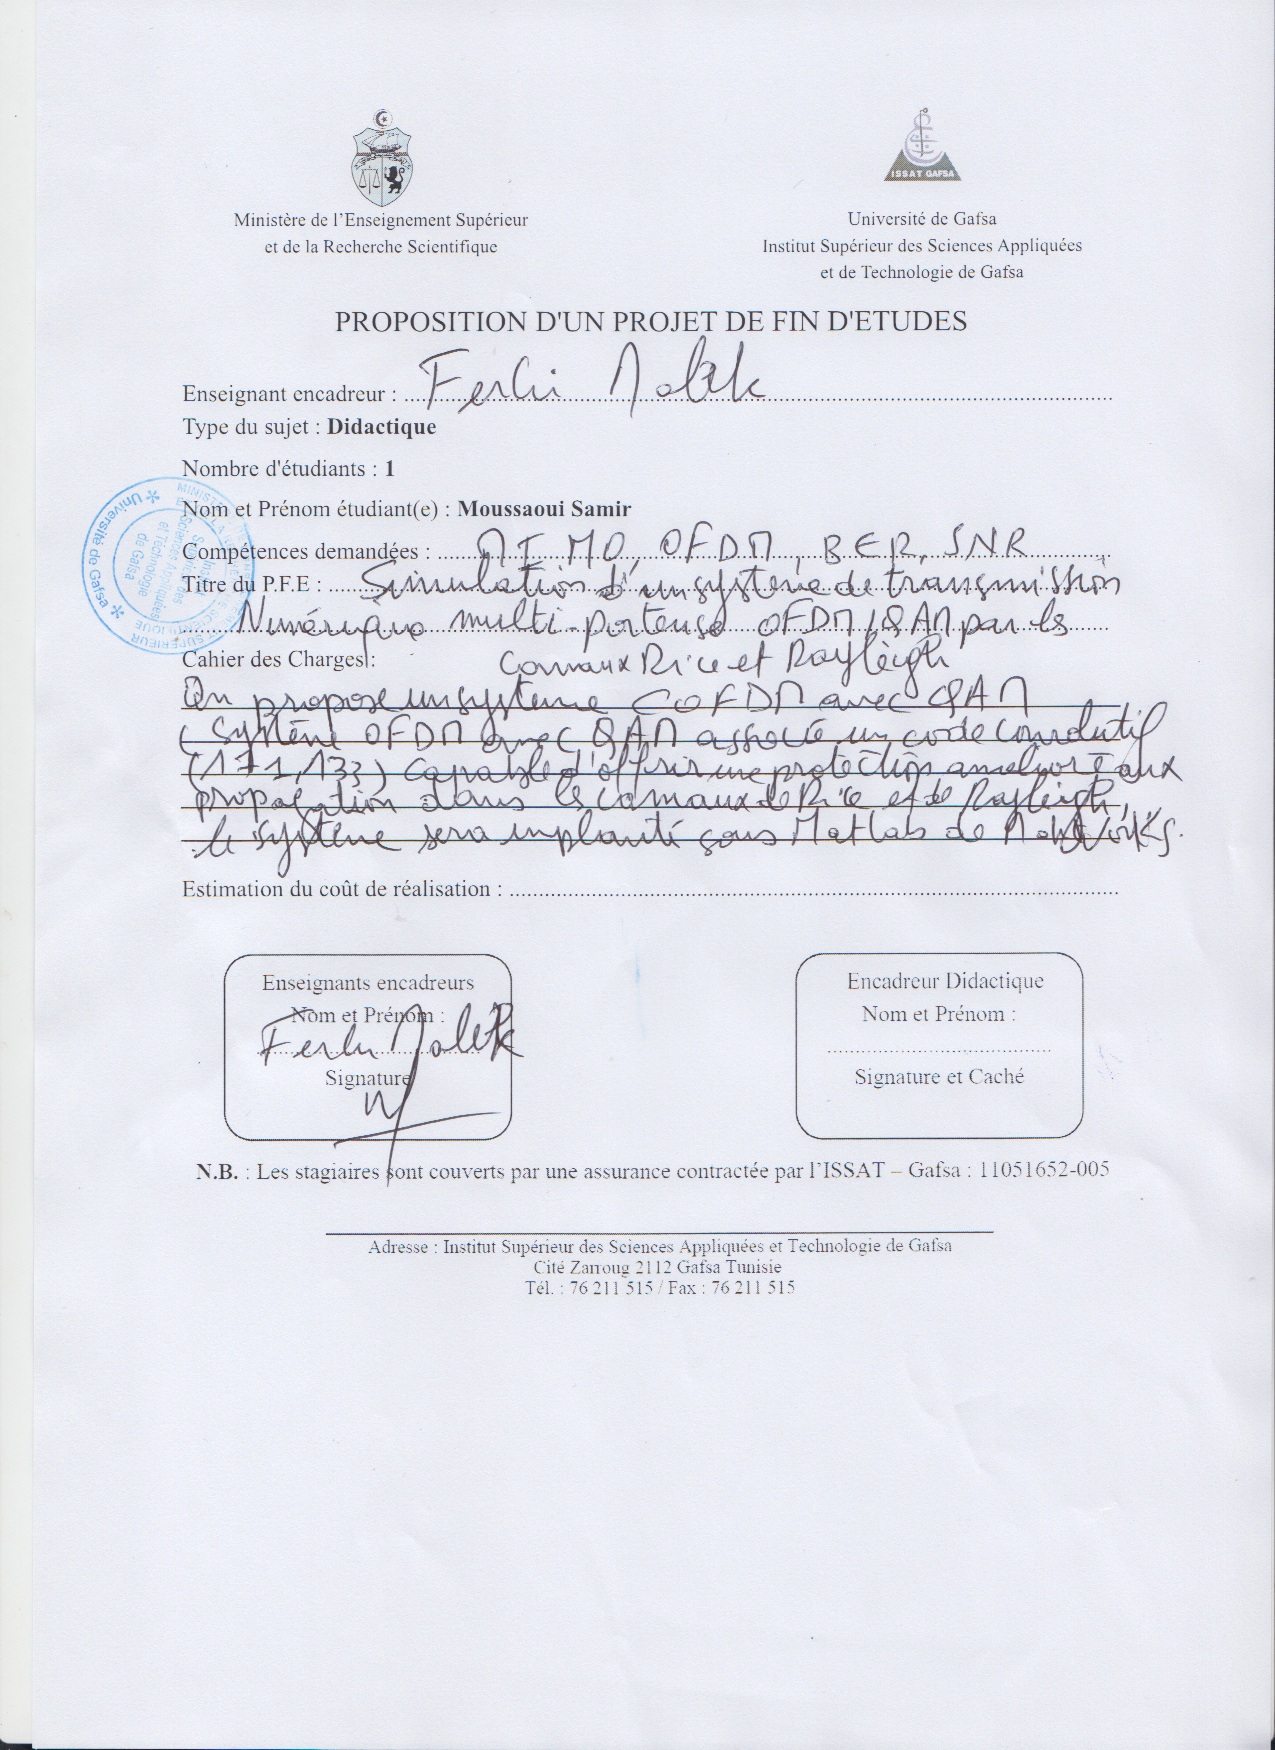 ISSAT GAFSA
Ministère de l'Enseignement Supérieur
et de la Recherche Scientifique
Université de Gafsa
Institut Supérieur des Sciences Appliquées
et de Technologie de Gafsa
PROPOSITION D'UN PROJET DE FIN D'ETUDES
Enseignant encadreur : Ferhi Malek
Type du sujet : Didactique
Nombre d'étudiants : 1
Nom et Prénom étudiant(e) : Moussaoui Samir
Compétences demandées : MIMO, OFDM, BER, SNR
Titre du P.F.E : Simulation d'un système de transmission
Numérique multi-porteuse OFDM/QAM par les
canaux Rice et Rayleigh
Cahier des Charges :
On propose un système COFDM avec QAM
(Système OFDM avec QAM associé un code convolutif
(171,133) capable d'offrir une protection amélioré aux
propagation dans les canaux de Rice et de Rayleigh,
le système sera implanté sous Matlab de MathWorks.
Estimation du coût de réalisation :
Enseignants encadreurs
Nom et Prénom :
Ferhi Malek
Signature
Encadreur Didactique
Nom et Prénom :
Signature et Caché
N.B. : Les stagiaires sont couverts par une assurance contractée par l'ISSAT – Gafsa : 11051652-005
Adresse : Institut Supérieur des Sciences Appliquées et Technologie de Gafsa
Cité Zarroug 2112 Gafsa Tunisie
Tél. : 76 211 515 / Fax : 76 211 515
Université de Gafsa
Sciences Appliquées
et Technologie
de Gafsa